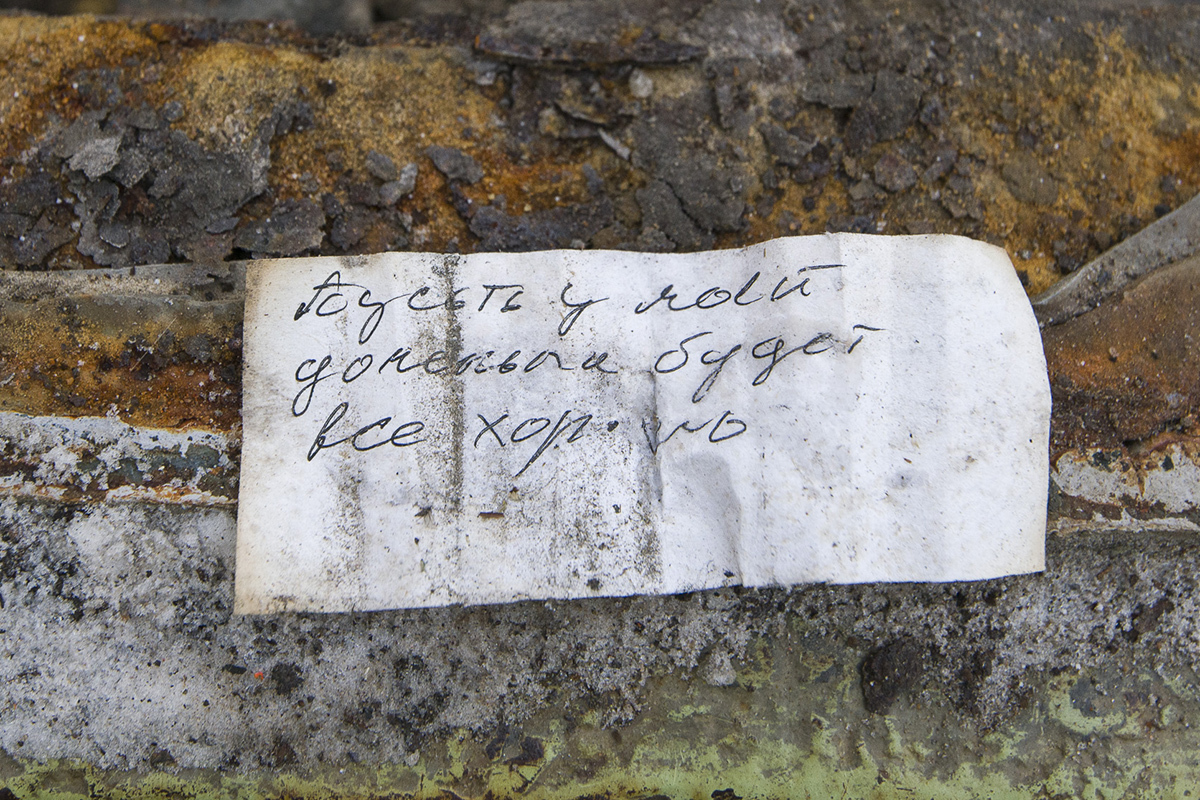 Пусть у моей
доченьки будет
все хорошо